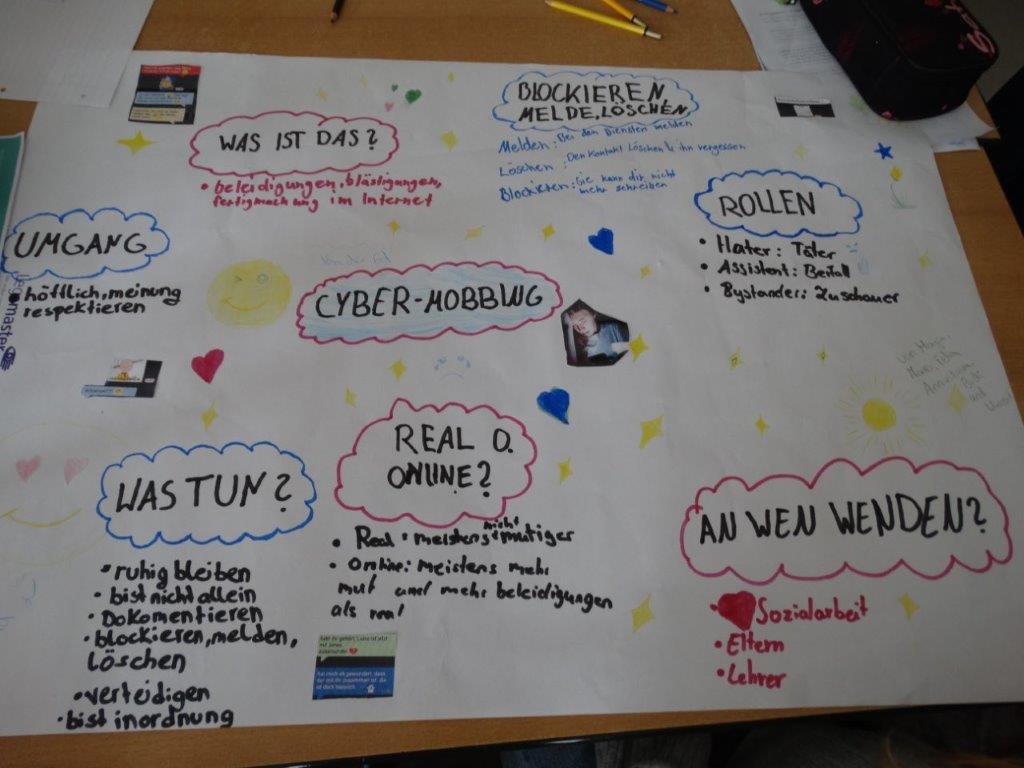 WAS IST DAS?
• beleidigungen, blästigungen,
fertigmachung im Internet
BLOCKIEREN,
MELDE, LÖSCHEN
Melden: Bei den Diensten melden
Löschen: Den Kontakt Löschen & ihn vergessen
Blockieren: Sie kann dir nicht
mehr schreiben
ROLLEN
• Hater: Täter
• Assistent: Beifall
• Bystander: Zuschauer
UMGANG
höfflich, meinung
respektieren
CYBER-MOBBING
WAS TUN?
• ruhig bleiben
• bist nicht allein
• Dokomentieren
• blockieren, melden,
löschen
• verteidigen
• bist inordnung
REAL O.
ONLINE?
• Real: meistens nicht mutiger
• Online: meistens mehr
mut und mehr beleidigungen
als real
AN WEN WENDEN?
Sozialarbeit
• Eltern
• Lehrer